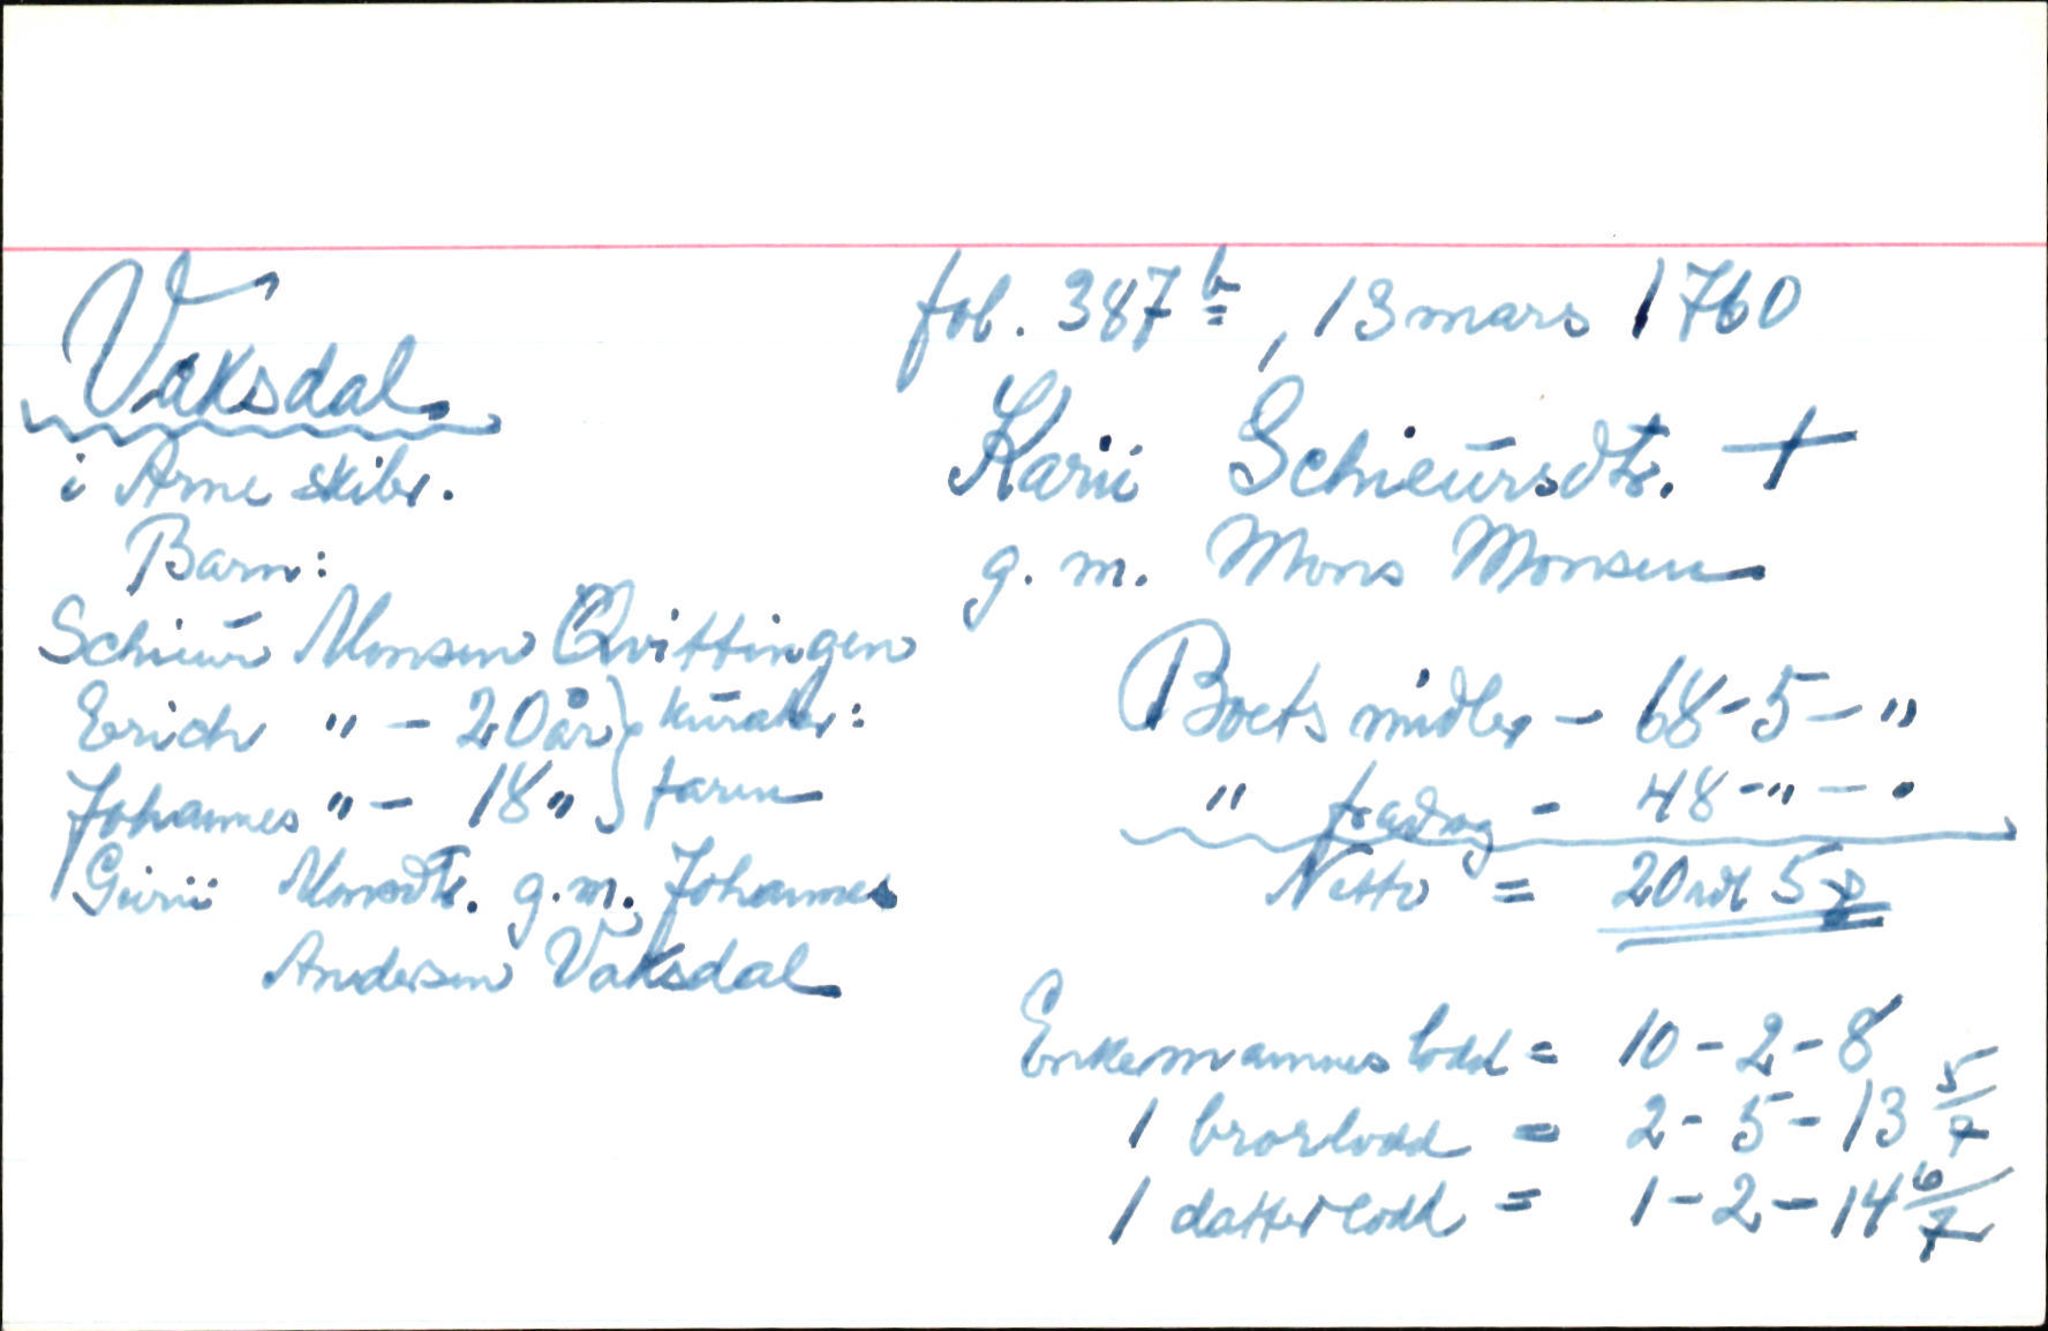 Vaksdal
i Arne skibr.
Barn:
Schiūr Monsen Qvittingen
Erich " - 20 år } kūrator:
Johannes " - 18 " } faren
Gūrii Monsdtr. g.m. Johannes
Andersen Vaksdal
fol. 387 b, 13 mars 1760
Karii Schieūrsdtr. +
g. m. Mons Monsen
Boets midler - 68 - 5 - "
" fradrag - 48 - " - "
Netto = 20 rdl 5 #
Enkemannes lodd = 10 - 2 - 8
1 brorlodd = 2 - 5 - 13 5/7
1 datterlodd = 1 - 2 - 14 6/7